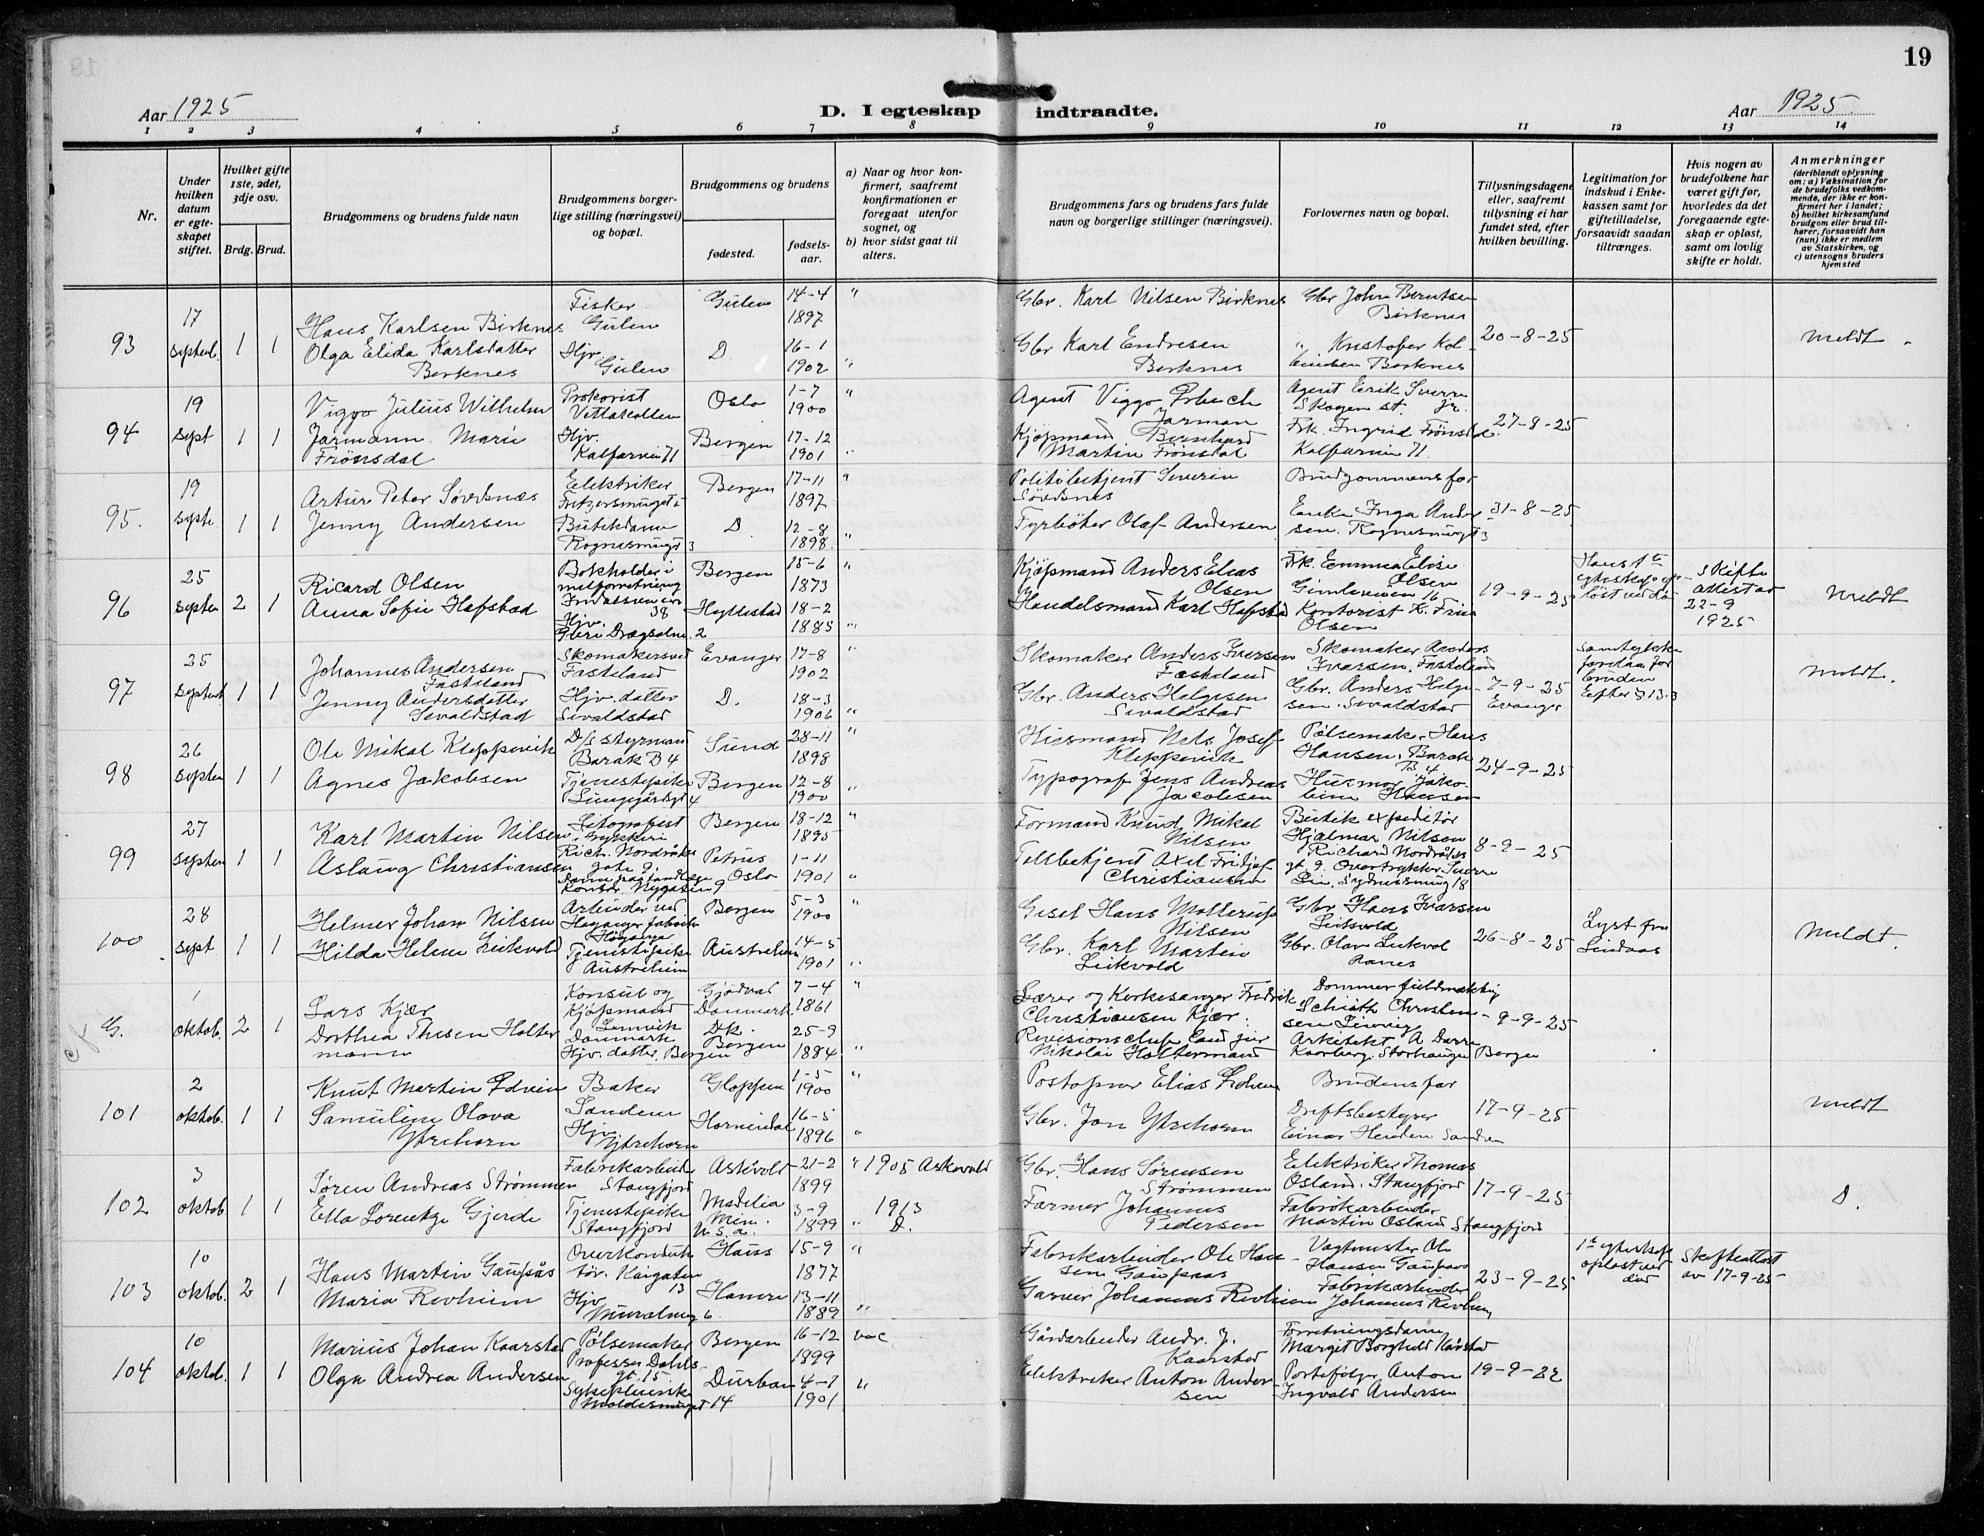 19
Aar 1925
D. I egteskap indtraadte.
Aar 1925
1 2 3 4 5 6 7 8 9 10 11 12 13 14
Nr.
Under hvilken datum er egteskapet stiftet.
Hvilket gifte 1ste, 2det, 3dje osv.
Brdg. Brud.
Brudgommens og brudens fulde navn
Brudgommens borgerlige stilling (næringsvei) og bopæl.
Brudgommens og brudens
fødested.
fødselsaar.
a) Naar og hvor konfirmert, saafremt konfirmationen er foregaat utenfor sognet, og
b) hvor sidst gaat til alters.
Brudgommens fars og brudens fars fulde navn og borgerlige stillinger (næringsvei).
Forlovernes navn og bopæl.
Tillysningsdagene eller, saafremt tillysning ei har fundet sted, efter hvilken bevilling.
Legitimation for indskud i Enkekassen samt for giftetilladelse, forsaavidt saadan tiltrænges.
Hvis nogen av brudefolkene har været gift før, hvorledes da det foregaaende egteskap er opløst, samt om lovlig skifte er holdt.
Anmerkninger
(deriblandt oplysning om: a) Vaksination for de brudefolks vedkommende, der ikke er konfirmert her i landet; b) hvilket kirkesamfund brudgom eller brud tilhører, forsaavidt han (hun) ikke er medlem av Statskirken, og c) utensogns bruders hjemsted
93 17 septeb. 1 1 Hans Karlsen Birknes Fisker Gulen Gulen 14-4 1897 " Gbr. Karl Nilsen Birknes Gbr John Berntsen Birknes 20-8-25 meldt
Olga Elida Karlsdatter Berknes Hjv. Gulen D. 16-1 1902 " Gbr Karl Endresen Berknes " Kristofer
94 19 sept 1 1 Viggo Julius Wilhelm Jarmann Prokorist Vettakollen Oslo 1-7 1900 " Agent Viggo Jarman Agent Erik Sverre Skogen st. jr. 27-8-25
Marie Frønsdal Hjv. Kalfarvein 71 Bergen 17-12 1901 " Kjøpmand Bernhard Martin Frønsdal Frk. Ingrid Frønsdal Kalfarvien 71.
95. 19 sept. 1 1 Artur Peter Søvdsnæs Elektriker Bergen 17-11 1897 " Politibetjent Severin Søvdsnes Brudgommens far 31-8-25
Jenny Andersen Butikdame Rognesmuget 3 D. 12-8 1898. " Fyrbøter Olaf Andersen Enke Inga Andersen. Rognesmugt 3
96 25 septen 2 1 Ricard Olsen Bokholder i Bergen 15-6 1873 " Kjøpmand Anders Elias Olsen Frk. Emma Elise Olsen 16 19-9-25 Hans 1ste egteskap opløst ved død Skifteattest av 22-9 1925 meldt
Anna Sofie Hafstad Hjv. 2 Hyllestad 18-2 1885 " Handelsmand Karl Hafstad Kontorist K. Olsen
97 25 septemb 1 1 Johannes Andersen Fasteland Skomakersved Fasteland Evanger 17-8 1902 " Skomaker Anders Iversen Fasteland Skomaker Anders Ivarsen. Fasteland 7-9-25 Evanger Samtykke foreligger for bruden Efter § 13.3 meldt.
Jenny Andersdatter Sevaldstad Hjv. datter Sevaldstad D. 18-3 1906 " Gbr. Anders Helgesen Sevaldstad Gbr. Anders Helgesen. Sevaldstad
98 26 septen 1 1 Ole Mikal Kleppevik D/s styrmand Barak B 4 Sund 28-11 1898 " Husmand Nils Josef Kleppevik Pølsemaker Hans Hansen. Barak B 4 24-9-25
Agnes Jakobsen Tjenestepike Lungegårdsgt 4 Bergen 12-8 1900 " Typograf Jens Andreas Jacobsen Husmor Jakobine Hansen
99 27 septen 1 1 Karl Martin Nilsen Litografist trykkeri Rich. Nordråks gate 9. Bergen 18-12 1895 " Formand Knud Mikal Nilsen Butikexpeditør Hjalmar Nilsen Richard Nordråks gt 9. 8-9-25
Aslaug Christiansen Dame Nygaten 9 Petrus Oslo 1-11 1901 " Tolbetjent Axel Fridjof Christiansen Overtrykker Sverre Lie, Sydnessmug 18
100 28 sept. 1 1 Helmer Johan Nilsen Arbeider ved Høyanger fabrikker Bergen 5-3 1900 " Hans Mollerup Nilsen Gbr. Hans Ivarsen Leikvold 26-8-25 Lyst fra Lindaas meldt.
Hilda Helene Leikvol Tjenestepike Austrheim Austrheim 14-5 1901 " Gbr. Karl Martin Leikvold Gbr. Olav Leikvol
G. 1 oktob. 2 1 Lars Kjær Konsul og Kjøpmand Lemvik Danmark Danmark. 7-4 1861 " Lærer og Kirkesanger Fredrik Christiansen Kjær. Dommerfuldmektig Christensen Lemvig 9-9-25
Dorthea Thesen Holtermann Hjv. datter. Bergen Bergen 25-9 1884 " Revisionschef Cand jur Nikolai Holtermand Arkitekt Storhaugen Bergen
101 2 oktob. 1 1 Knut Martin Edvin Baker Sandene Gloppen 1-5 1900 " Postopner Elias Brudens far 17-9-25 meldt
Samuline Olova Ytrehorn Hjv. Ytrehorn Hornindal 16-5 1896 " Gbr. Jon Ytrehorn Driftsbestyrer Einar Sanden
102 3 oktob. 1 1 Søren Andreas Strømmen Fabrikarbeider Stangfjord Askevold 21-2 1899 " 1905 Askevold Gbr. Hans Sørensen Strømmen Elektriker Thomas Osland. Stangfjord 17-9-25 D.
Ella Lorentze Gjerde Tjenestepike Stangfjord Madelia Min. U.S.A. 3-9 1899 " 1913 D. Farmer Johannes Pedersen Fabrikarbeider Martin Osland Stangfjord
103 10 oktob. 2 1 Hans Martin Gaupås Overkonduktør. Kaigaten 13 Haus 15-9 1877 " Fabrikarbeider Ole Hansen Gaupaas Vogtmester Ole Hansen Gaupaas 23-9-25 1ste egteskap opløst ved død Skifteattest av 17-9-25
Maria Revheim Hjv. 6. Hamre 13-11 1889 " Garver Johannes Revheim Fabrikarbeider Johannes Revheim
104 10 oktob. 1 1 Marius Johan Kaarstad Pølsemaker Professor Dahls gt. 15. Bergen 16-12 1899 vac Gårdarbeider Andr. J. Kaarstad Forretningsdame Margit Borghild Kårstad 19-9-22
Olga Andrea Andersen Sykepleierske 14 Durban 4-7 1901 " Elektriker Anton Andersen Portefølger Anton Ingvald Andersen